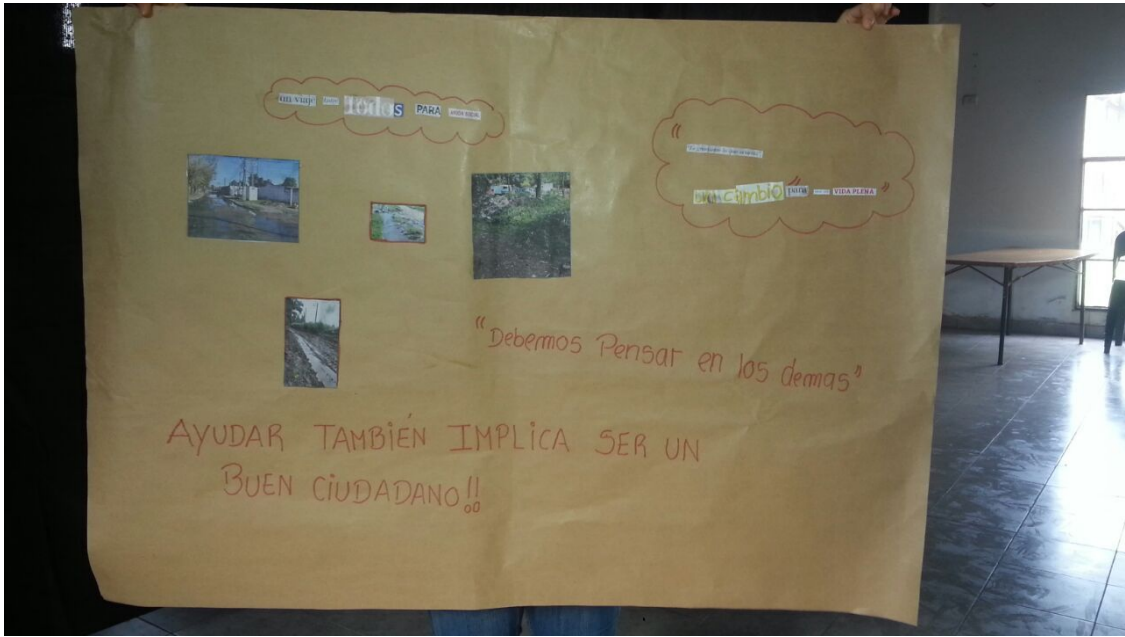 un viaje todos PARA
un cambio para VIDA PLENA
"Debemos Pensar en los demas"
AYUDAR TAMBIÉN IMPLICA SER UN
BUEN CIUDADANO!!